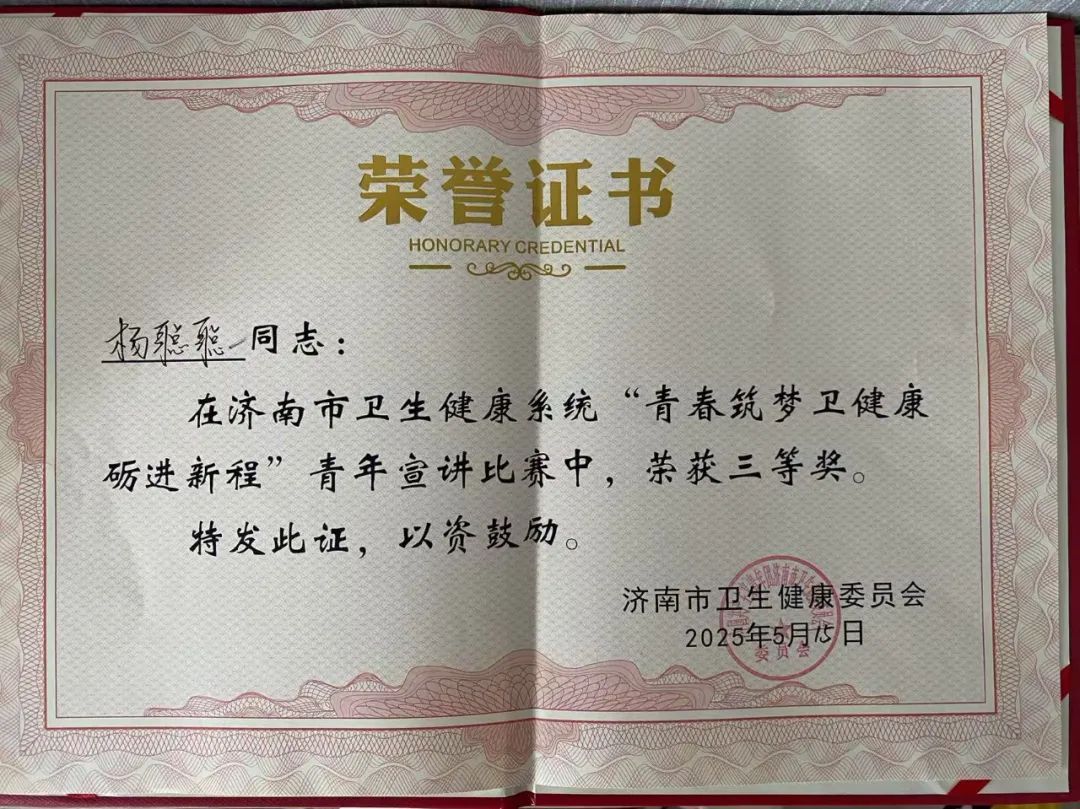 荣誉证书
HONORARY CREDENTIAL
杨聪聪同志：
在济南市卫生健康系统“青春筑梦卫健康
砺进新程”青年宣讲比赛中，荣获三等奖。
特发此证，以资鼓励。
济南市卫生健康委员会
2025年5月15日
委员会